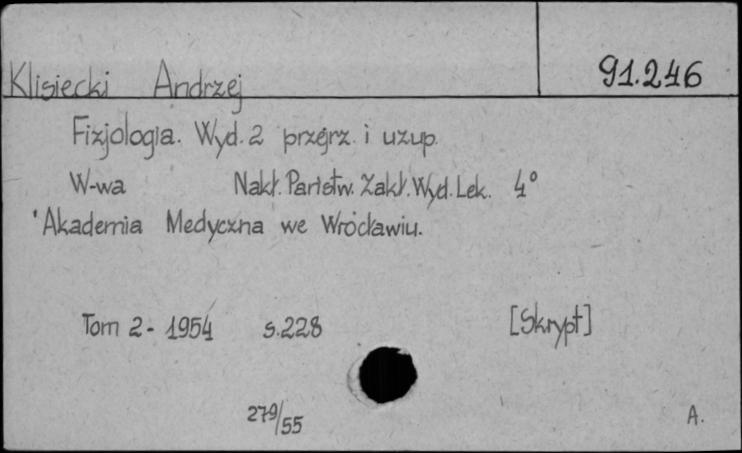 91.246
Klisiecki Andrzej
Fizjologia. Wyd. 2 przejrz. i uzup.
W-wa Nakł. Państw. Zakł. Wyd. Lek. 4°
Akademia Medyczna we Wrocławiu.
Tom 2 - 1954 s. 228 [Skrypt]
279/55 A.